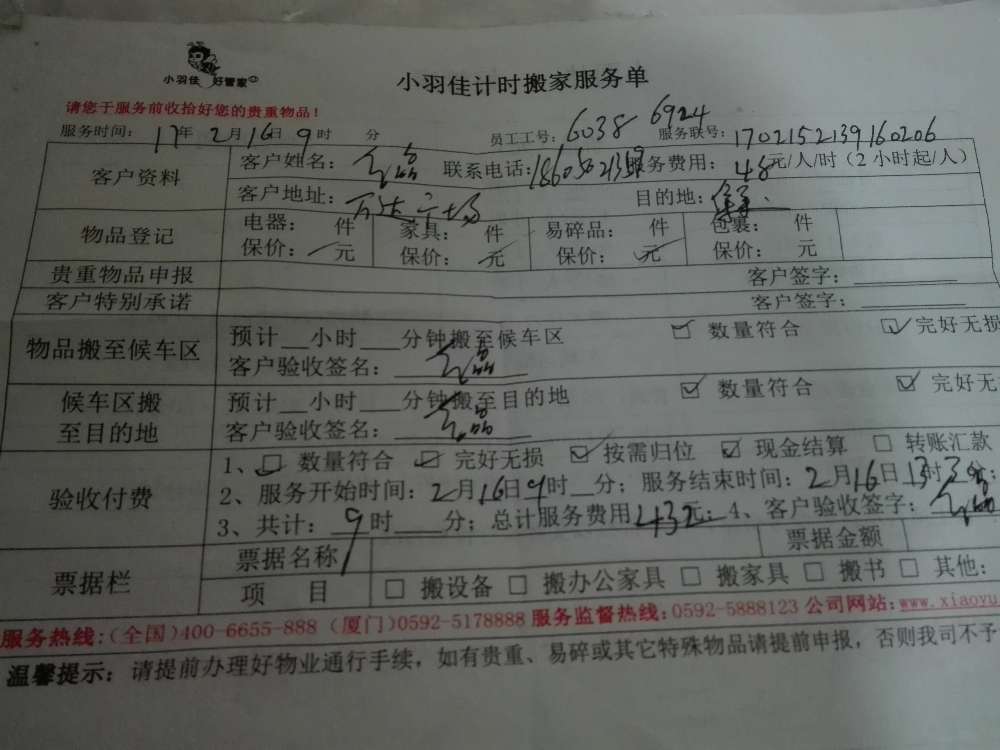 小羽佳 好管家
小羽佳计时搬家服务单
请您于服务前收拾好您的贵重物品！
服务时间： 17年 2月16日 9时 分 员工工号：6038 6924 服务联号：1702152139160206
客户资料 客户姓名： 联系电话： 服务费用： 48元/人/时（2小时起/人）
客户地址：万达广场 目的地：
物品登记 电器： 件 家具： 件 易碎品： 件 包裹： 件
保价： 元 保价： 元 保价： 元 保价： 元
贵重物品申报 客户签字：
客户特别承诺 客户签字：
物品搬至候车区 预计__小时___分钟搬至候车区 ☑ 数量符合 ☑ 完好无损
客户验收签名：
候车区搬至目的地 预计__小时___分钟搬至目的地 ☑ 数量符合 ☑ 完好无
客户验收签名：
验收付费 1、☑ 数量符合 ☑ 完好无损 ☑ 按需归位 ☑ 现金结算 □ 转账汇款
2、服务开始时间：2月16日9时__分；服务结束时间：2月16日13时
3、共计：9时____分；总计服务费用432元；4、客户验收签字：
票据栏 票据名称 票据金额
项 目 □ 搬设备 □ 搬办公家具 □ 搬家具 □ 搬书 □ 其他：
服务热线：(全国)400-6655-888 (厦门)0592-5178888 服务监督热线：0592-5888123 公司网站：www.xiaoyu
温馨提示：请提前办理好物业通行手续，如有贵重、易碎或其它特殊物品请提前申报，否则我司不予